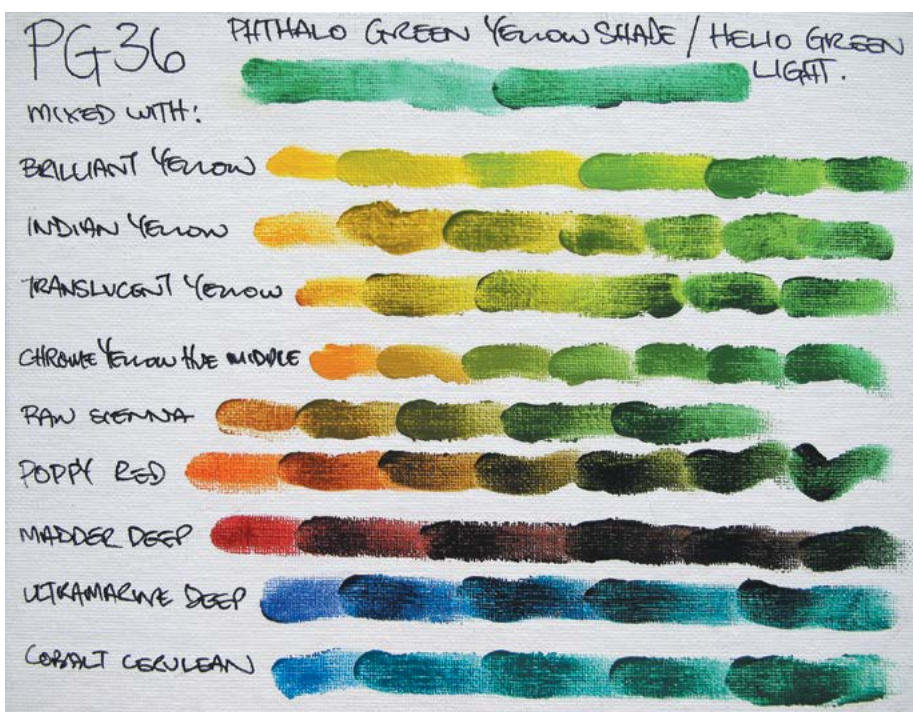 PG36 PHTHALO GREEN YELLOW SHADE / HELIO GREEN
LIGHT.
MIXED WITH:
BRILLIANT YELLOW
INDIAN YELLOW
TRANSLUCENT YELLOW
CHROME YELLOW HUE MIDDLE
RAW SIENNA
POPPY RED
MADDER DEEP
ULTRAMARINE DEEP
COBALT CERULEAN